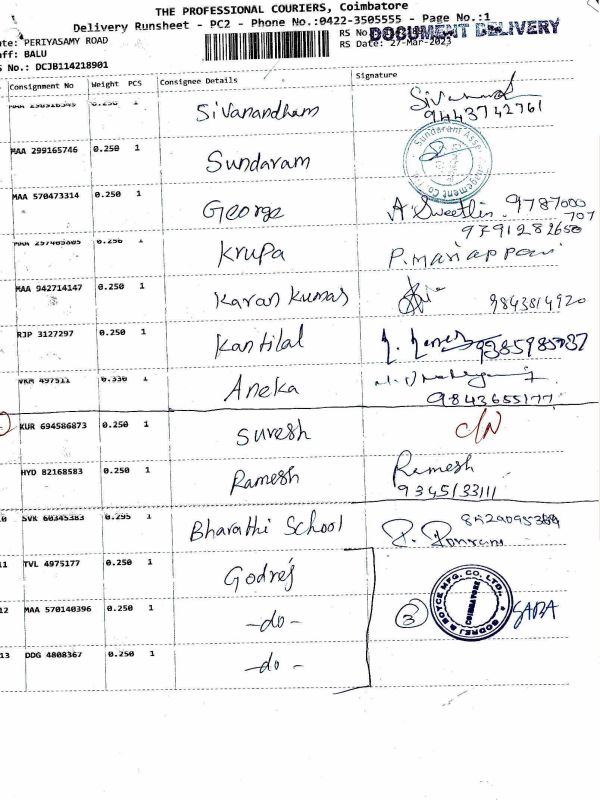 THE PROFESSIONAL COURIERS, Coimbatore
Delivery Runsheet - PC2 - Phone No.:0422-3505555 - Page No.:1
DOCUMENT DELIVERY
ute: PERIYASAMY ROAD
RS No
aff: BALU
RS Date: 27-Mar-2023
S No.: DCJB114218901
Consignment No Weight PCS Consignee Details Signature
0.250 1 Sivanandham
9443742761
MAA 299165746 0.250 1 Sundaram
MAA 570473314 0.250 1 George A Sweetlin 9787000
707
9791282650
1 Krupa P. Mariappan
MAA 942714147 0.250 1 Karan Kumar 9843814920
RJP 3127297 0.250 1 Kantilal
VKM 497511 0.330 1 Aneka
9843655177
KUR 694586873 0.250 1 Suresh C/N
HYD 82168583 0.250 1 Ramesh Ramesh
9345133111
10 SVK 60345383 0.295 1 Bharathi School
11 TVL 4975177 0.250 1 Godrej
12 MAA 570140396 0.250 1 -do- 3 GODREJ & BOYCE MFG. CO. LTD., COIMBATORE
13 DDG 4808367 0.250 1 -do-